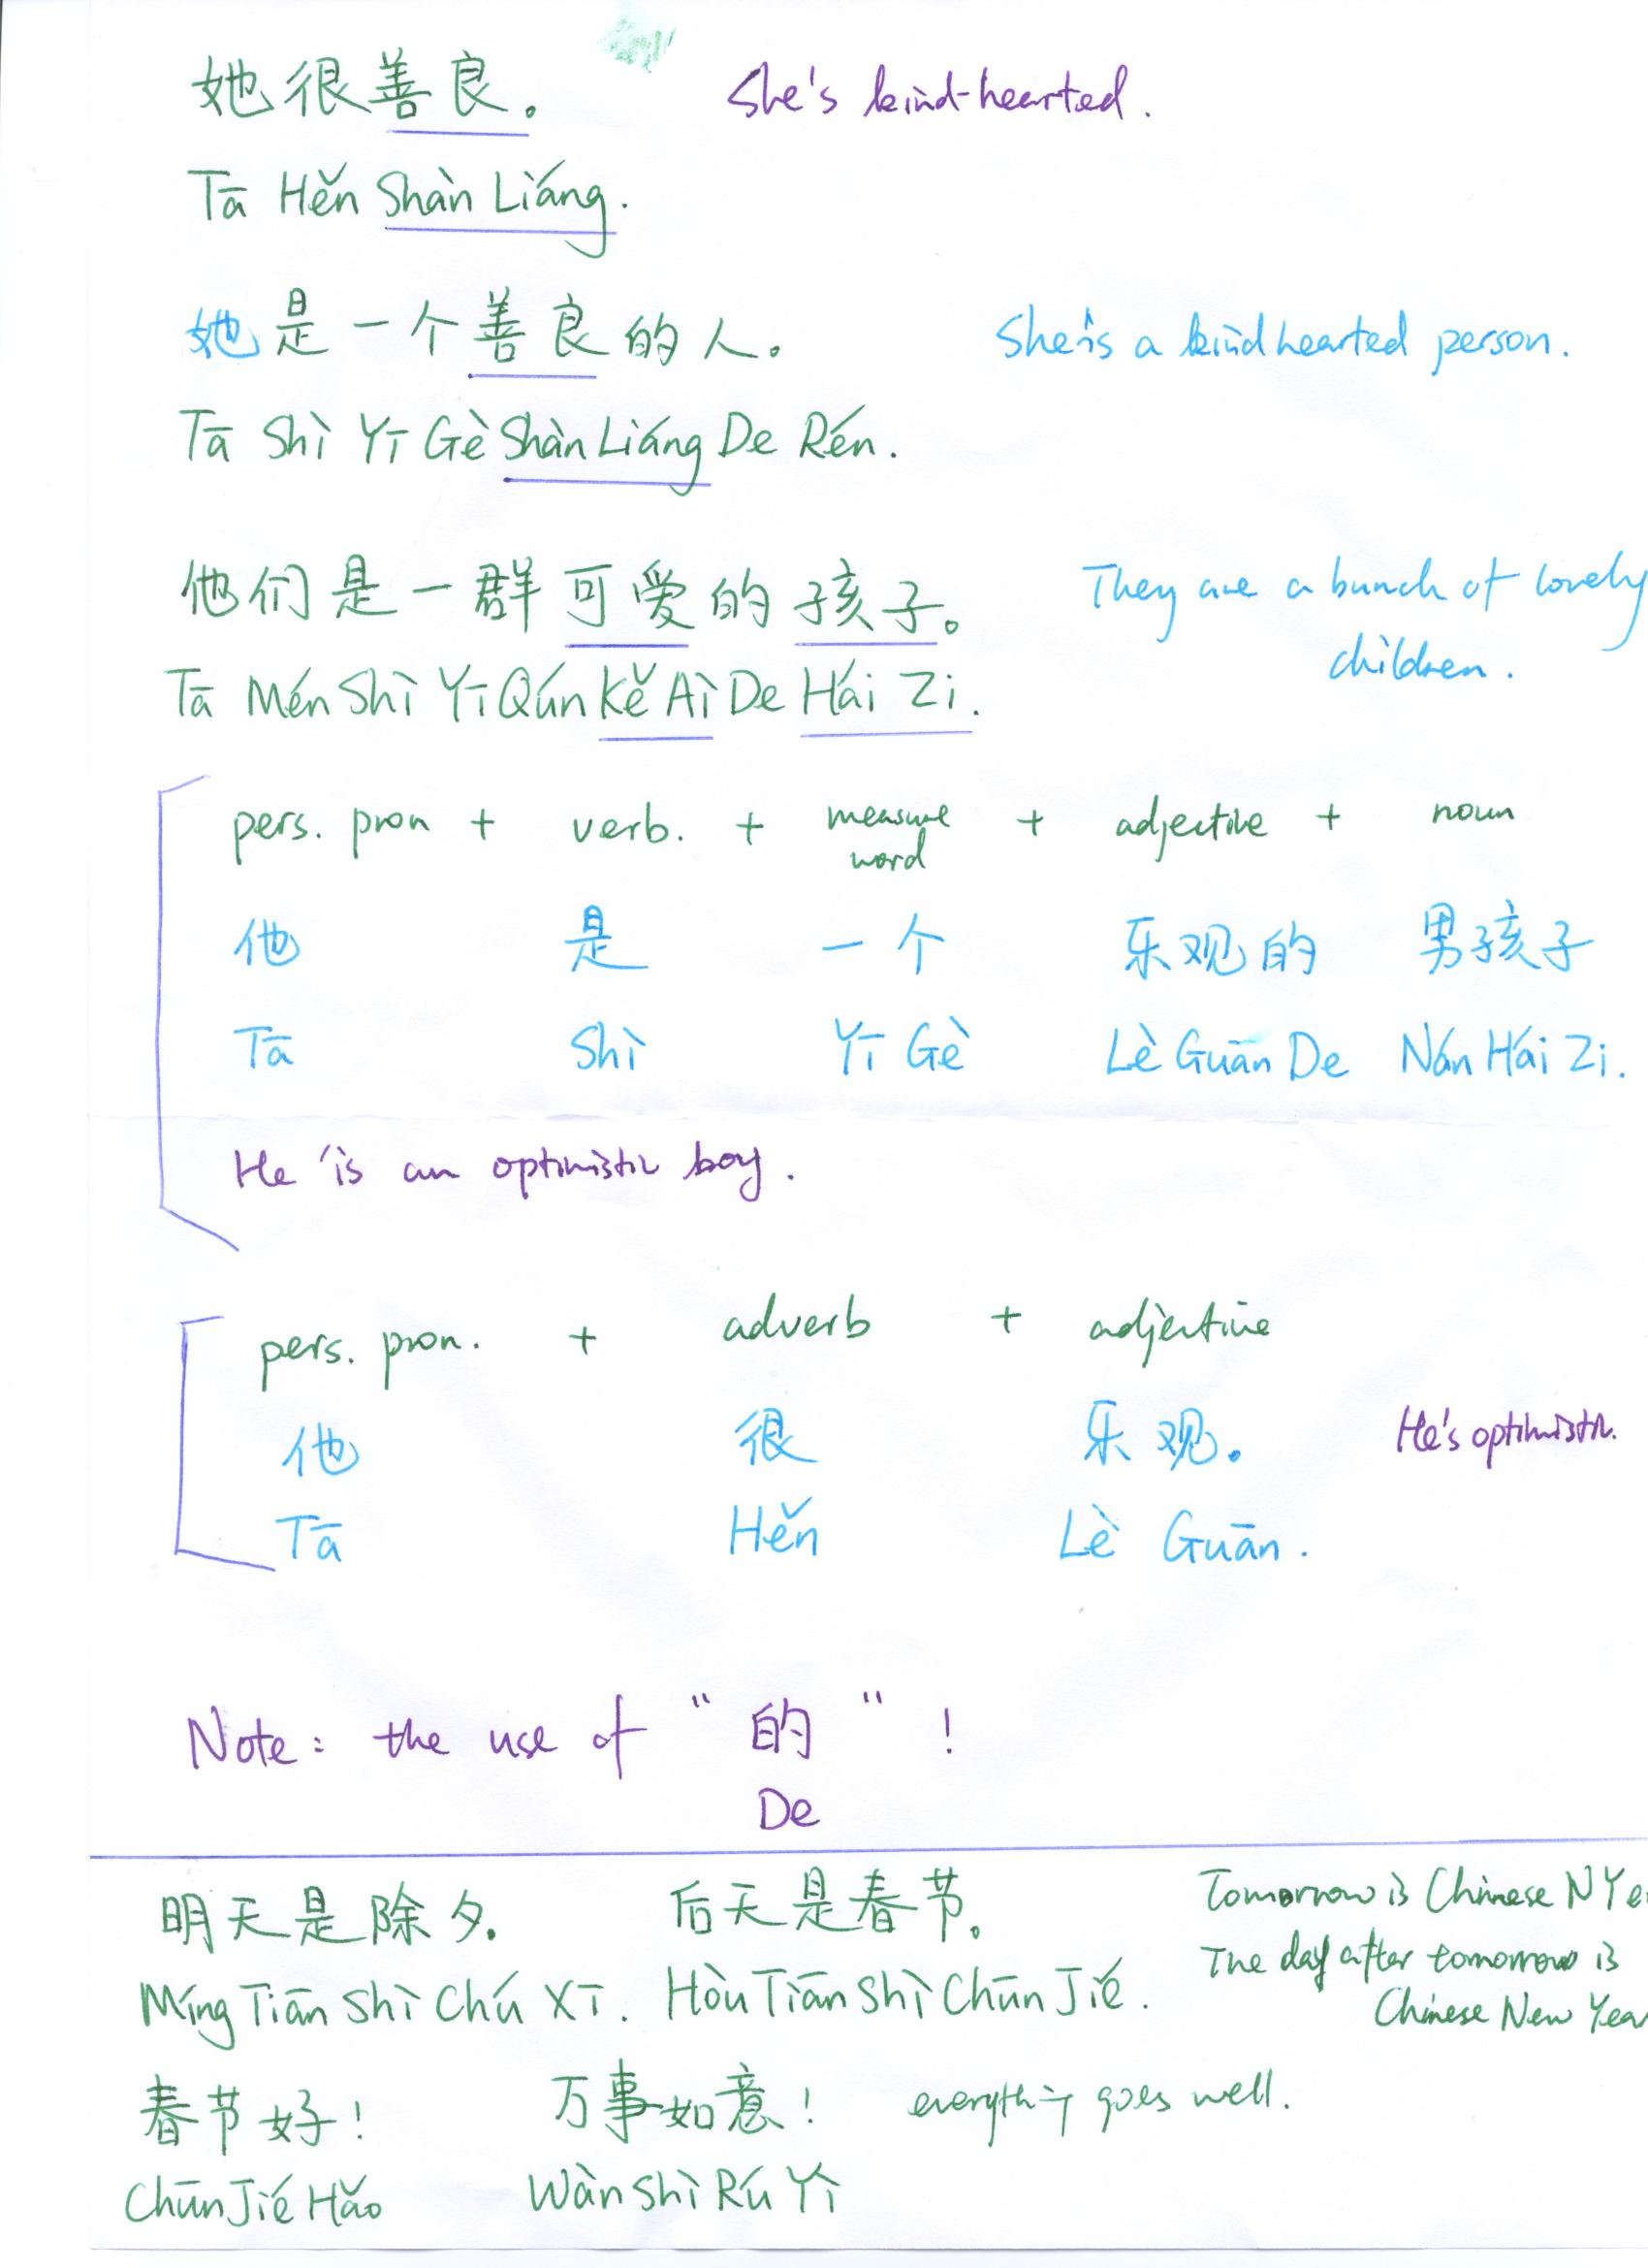 她很善良。 She's kind-hearted.
Tā Hěn Shàn Liáng.
她是一个善良的人。 She's a kindhearted person.
Tā Shì Yī Gè Shàn Liáng De Rén.
他们是一群可爱的孩子。 They are a bunch of lovely
children.
Tā Mén Shì Yī Qún Kě Ài De Hái Zi.
pers. pron + verb. + measure word + adjective + noun
他 是 一个 乐观的 男孩子
Tā Shì Yī Gè Lè Guān De Nán Hái Zi.
He 'is an optimistic boy.
pers. pron. + adverb + adjective
他 很 乐观。 He's optimistic.
Tā Hěn Lè Guān.
Note: the use of "的"!
De
明天是除夕. 后天是春节。 Tomorrow is Chinese N Ye
The day after tomorrow is
Míng Tiān Shì Chú Xī. Hòu Tiān Shì Chūn Jié. Chinese New Year
春节好! 万事如意! everything goes well.
Chūn Jié Hǎo Wàn Shì Rú Yì